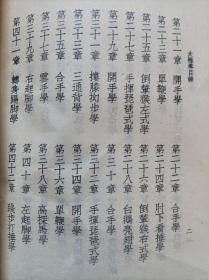 太極拳目錄
第二十一章 開手學 第二十二章 合手學
第二十三章 單鞭學 第二十四章 肘下看捶學
第二十五章 倒輦猴左式學 第二十六章 倒輦猴右式學
第二十七章 手揮琵琶式學 第二十八章 白鶴亮翅學
第二十九章 開手學 第三十章 合手學
第三十一章 摟膝拗步學 第三十二章 手揮琵琶式學
第三十三章 三通背學 第三十四章 開手學
第三十五章 合手學 第三十六章 單鞭學
第三十七章 雲手學 第三十八章 高探馬學
第三十九章 右起脚學 第四十章 左起脚學
第四十一章 轉身踢脚學 第四十二章 踐步打捶學
二